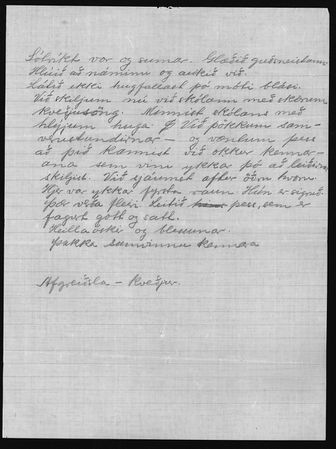 Sólríkt vor og sumar. Glæðið guðsneistann
Hlúið að náminu og aukið við.
Látið ekki hugfallast þó móti blási.
Við skiljum nú við skólann með skónum
kveðjusöng. Minnist skólans með
hlýjum huga. Við þökkum sam-
verustundirnar og væntum þess
að þið kannist við okkur kennar-
ana sem vini ykkar þó að leiðir
skiljist. Við sjáumst aftur
Hjer var ykkar fyrsta raun. Hún er sigruð
Þær verða fleiri. Leitið þess, sem er
fagurt gott og satt.
Heillaóski og blessunar.
Þakka samvinnu kennara
Afgreiðsla – Kveðjur.